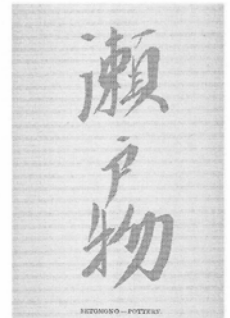 瀬戸物
SETOMONO—POTTERY.